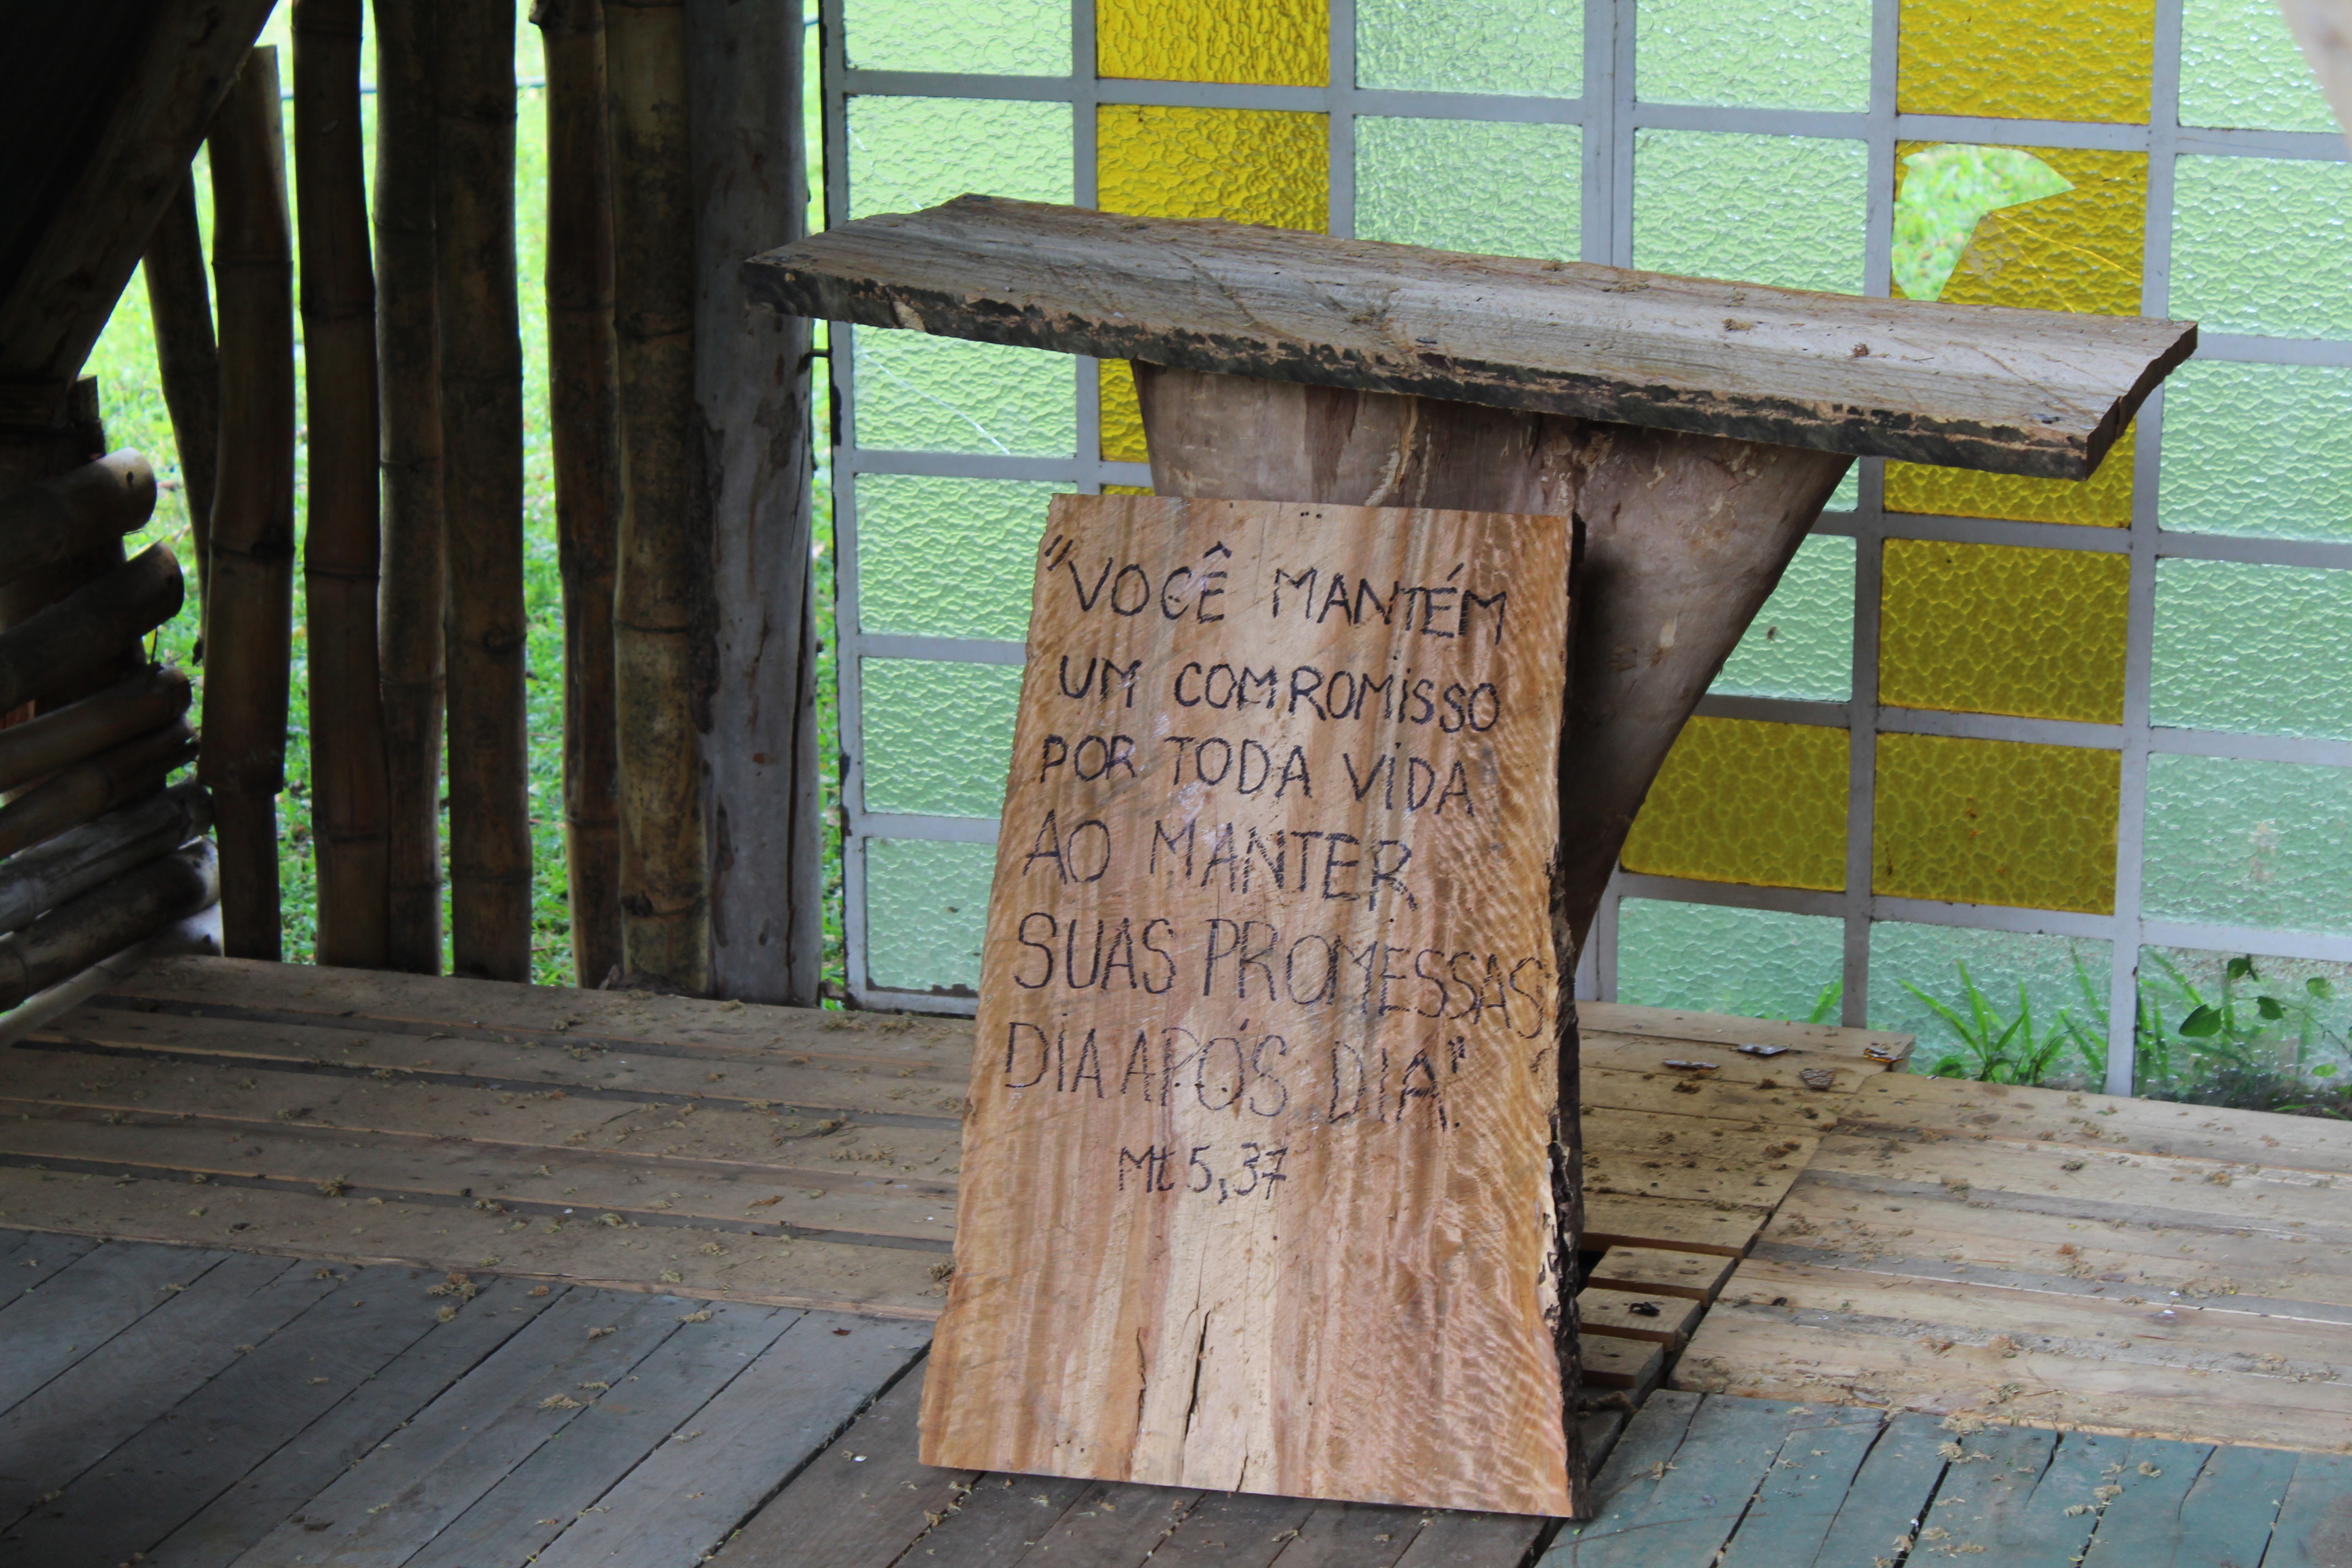 "VOCÊ MANTÉM
UM COMROMiSSO
POR TODA ViDA
AO MANTER
SUAS PROMESSAS
DiA APÓS DIA".
Mt 5,37